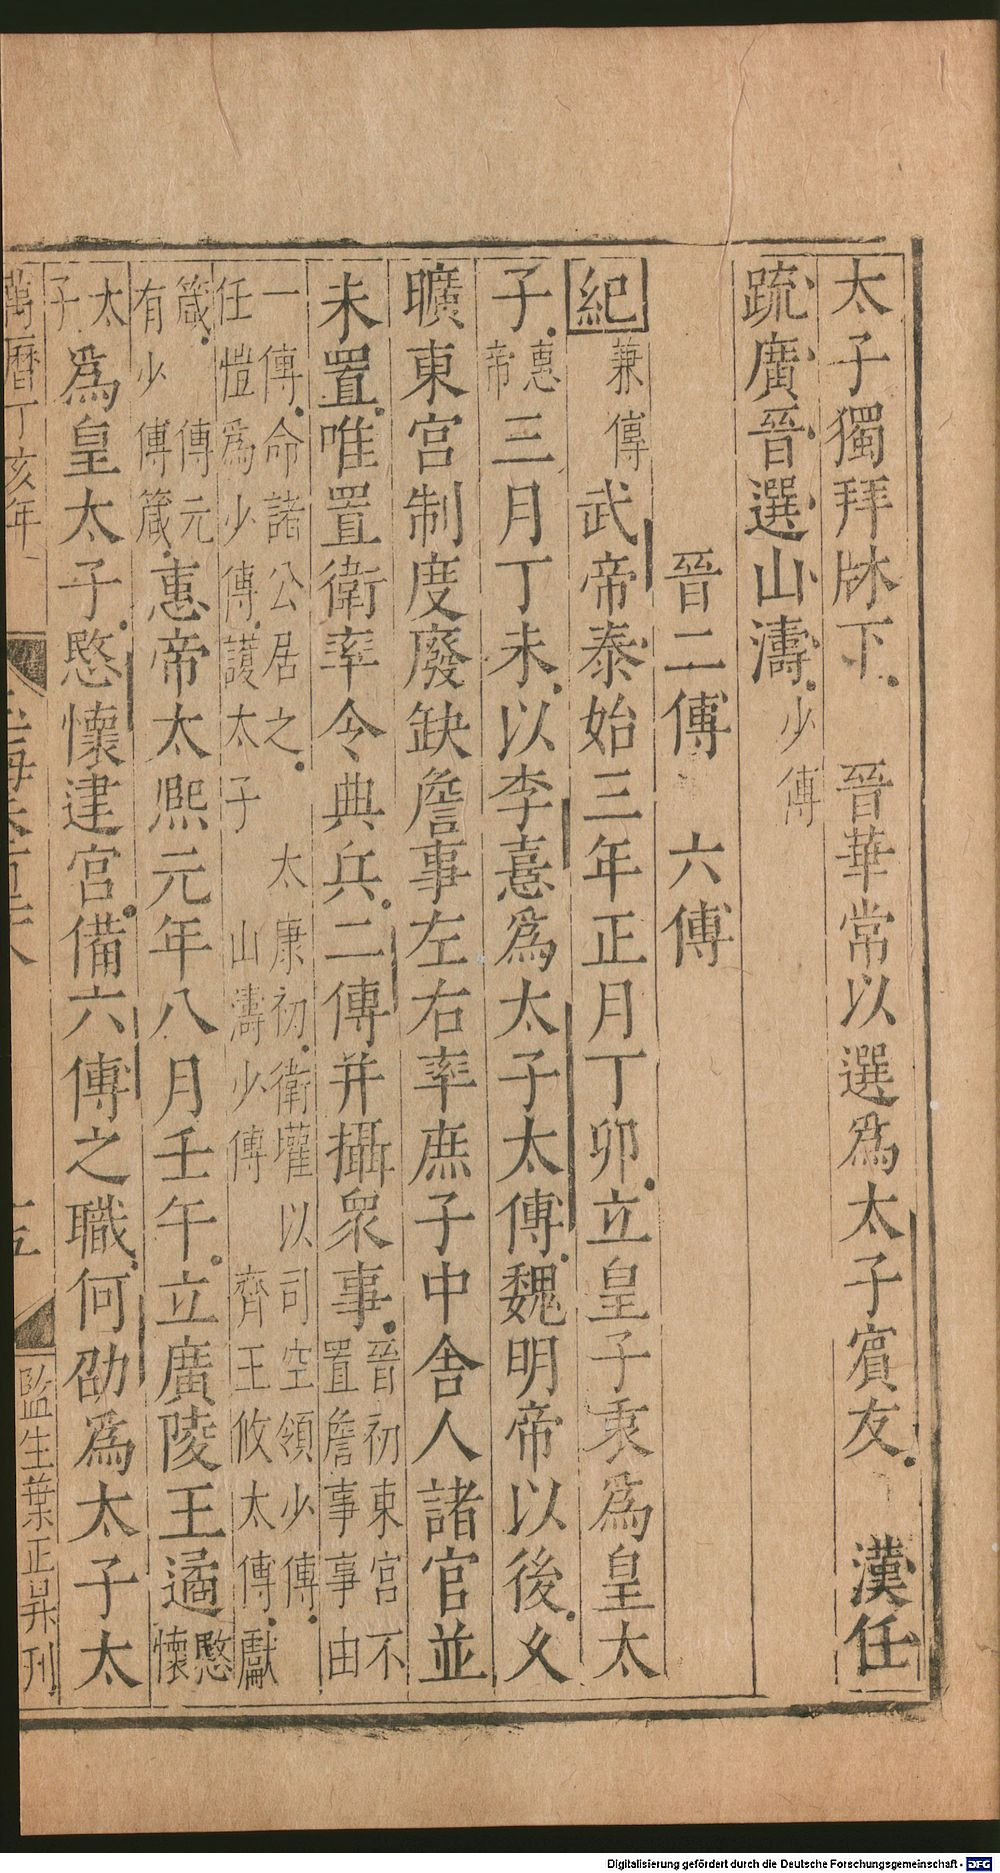 太子獨拜牀下 晉華常以選爲太子賓友 漢任
疏廣晉選山濤少傅
晉二傅 六傅
紀兼傳武帝泰始三年正月丁卯立皇子衷爲皇太
子惠帝三月丁未以李憙爲太子太傅魏明帝以後久
曠東宫制度廢缺詹事左右率庶子中舍人諸官並
未置唯置衛率令典兵二傅并攝衆事晉初東宫不置詹事事由
一傅命諸公居之 太康初衛瓘以司空領少傅
任愷爲少傅護太子 山濤少傅 齊王攸太傅獻
箴 傅元有少傅箴惠帝太熙元年八月壬午立廣陵王遹愍懷
太子爲皇太子愍懷建宫備六傅之職何劭爲太子太
萬曆丁亥年
玉海卷百 六
十五
監生葉正昇刊
Digitalisierung gefördert durch die Deutsche Forschungsgemeinschaft - DFG